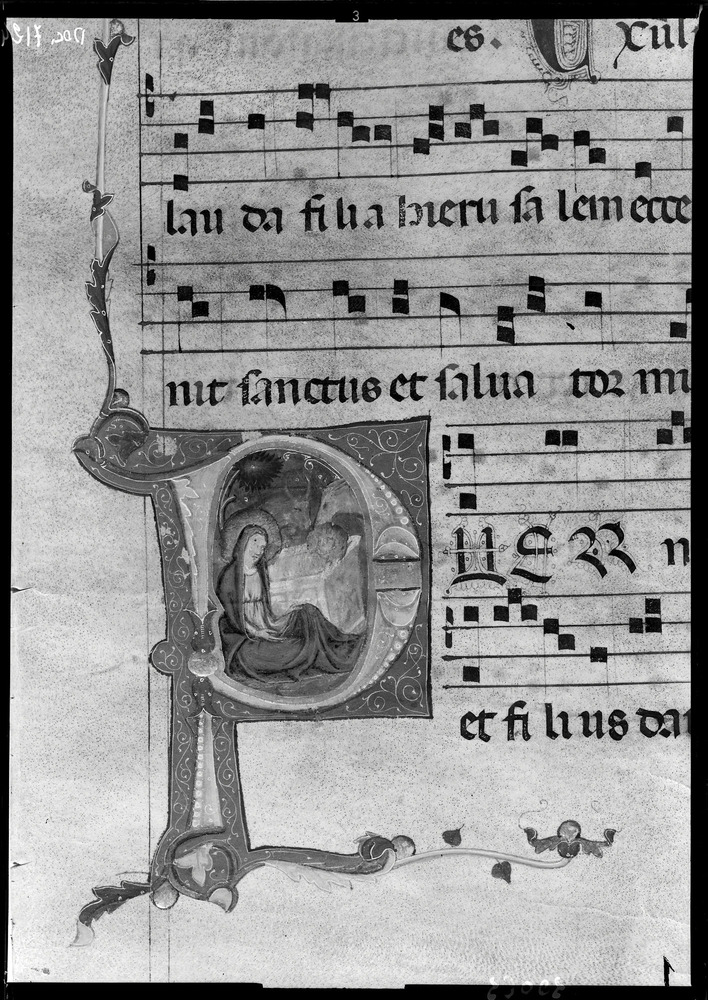 es. Exul
lau da fi li a hieru sa lem ecce
nit sanctus et salua tor mi
PUER n
et fi li us da